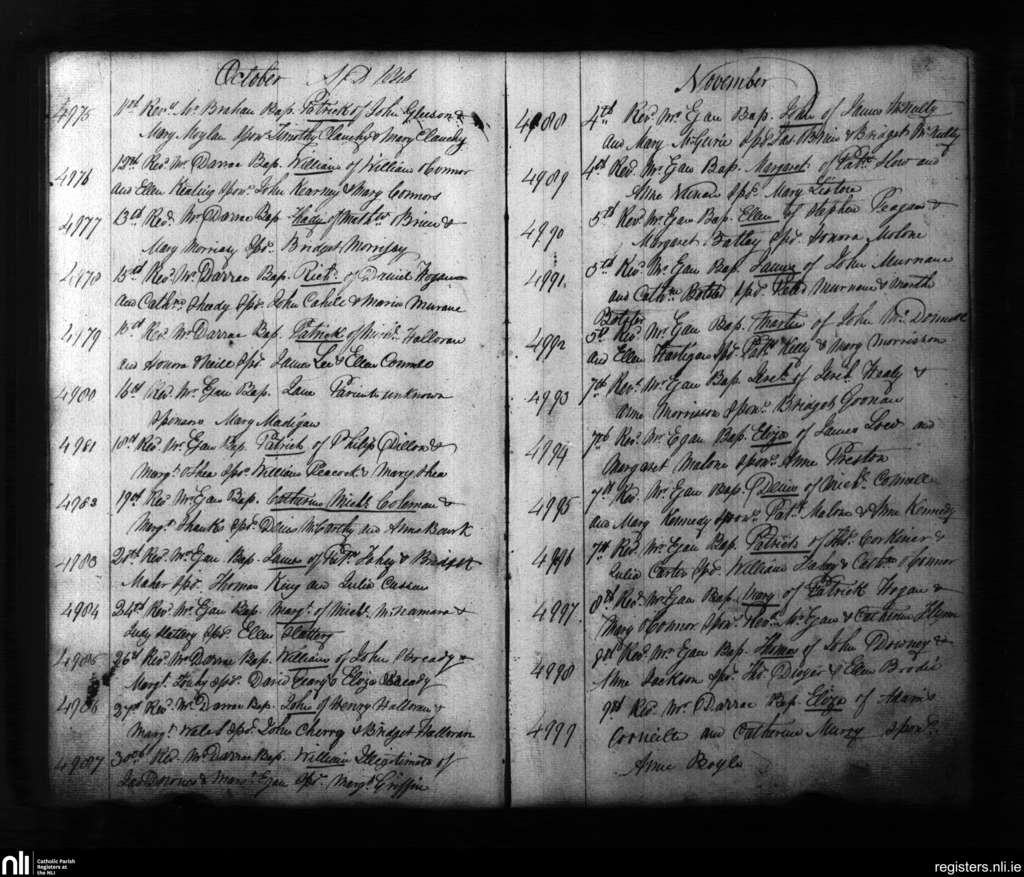 October A.D. 1846
4975 11th Revd. Mr. Brahan Bap. Patrick of John Gleeson &
Mary Moylan Spor. Timothy Clanchy & Mary Clanchy
4976 13th Revd. Mr. Darrac Bap. William of William O Connor
and Ellen Keating Spors. John Kearney & Mary Connors
4977 13th Revd. Mr Darrac Bap. of Brien &
Mary Morrisay Spr. Bridget Morrisay
4978 15th Revd. Mr. Darrac Bap. Richd. of Daniel Hogan
and Cathne. Sheady Spr. John Cahill & Maria Murane
4979 Rev Mr Darrac Bap. Patrick of Halloran
and Honora Spr. James Lee & Ellen
4980 16th Revd. Mr. Egan Bap. Jane Parents unknown
Sponsors Mary Madigan
4981 18th Revd. Mr. Egan Bap. Patrick of Philip Dillon &
Margt. Shea Spor. William Peacock & Mary Shea
4982 19th Revd. Mr Egan Bap. Catherine Michl. Coleman &
Margt. Shanks Spr. Denis McCarthy and Anne Bourk
4983 Revd. Mr. Egan Bap. James of Fahey & Bridget
Maher Spr. Thomas King and Julia Cussen
4984 24th Revd. Mr. Egan Bap. Margt. of Michl. McNamara &
Judy Slattery Spr. Ellen Slattery
4985 26th Revd. Mr. Darrac Bap. William of John &
Margt. Spr. David Geary & Eliza
4986 27th Revd. Mr. Darrac Bap. John of Henry Halloran &
Margt. Spr. John Cherry & Bridget Halloran
4987 30th Revd. Mr Darrac Bap. William Illegitimate of
Jas Downes & Margt. Egan Spr. Margt. Griffin
November
4988 4th Revd. Mr. Egan Bap. John of James McNulty
and Mary McGuire Spr. Jas. OBrien & Bridget McNulty
4989 4th Revd. Mr. Egan Bap. Margaret of Patk. and
Anne Spr. Mary Liston
4990 5th Revd. Mr. Egan Bap. Ellen of Stephen Reagan &
Margaret Spr. Honora Molone
4991 5th Revd. Mr. Egan Bap. of John Murnane
and Cathne. Spr. Murnane & Martha
4992 5th Revd. Mr. Egan Bap. Martin of John McDonnell
and Ellen Hartigan Spr. Patk. Kelly & Mary Morrison
4993 7th Revd. Mr. Egan Bap. of Healy &
Anne Morrisson Spon. Bridget Goonan
4994 7th Revd. Mr. Egan Bap. Eliza of James and
Margaret Malone Spon. Anne Preston
4995 7th Rev. Mr. Egan Bap. Denis of Michl.
and Mary Kennedy Spon. Patk. Malone & Anne Kennedy
4996 7th Revd. Mr. Egan Bap. Patrick of Thos. &
Julia Carter Spr. William & Cathne. OConnor
4997 8th Revd. Mr Egan Bap. Mary of Patrick Hogan &
Mary O Connor Spon. Revd. Mr. Egan & Catherine Flynn
4998 Revd. Mr. Egan Bap. Thomas of John Downey &
Anne Jackson Spr. Thos. Dwyer & Ellen Brodie
4999 9th Revd. Mr. Darrac Bap. Eliza of Adam
Corneille and Catherine Murry Sponr.
Anne Boyle
nli Catholic Parish
Registers at
the NLI
registers.nli.ie